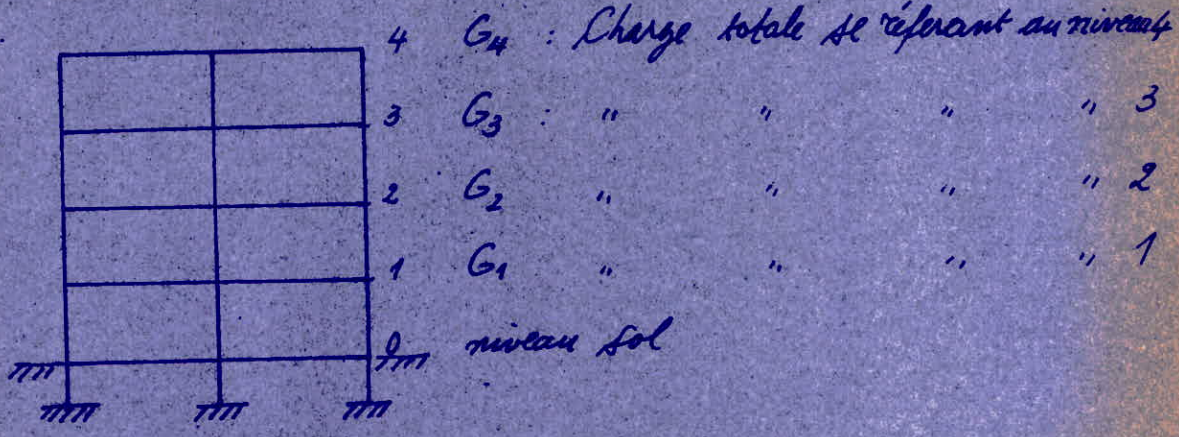 4 G4 : Charge totale se réferant au niveau 4
3 G3 : " " " " 3
2 G2 " " " " 2
1 G1 " " " " 1
0 niveau sol